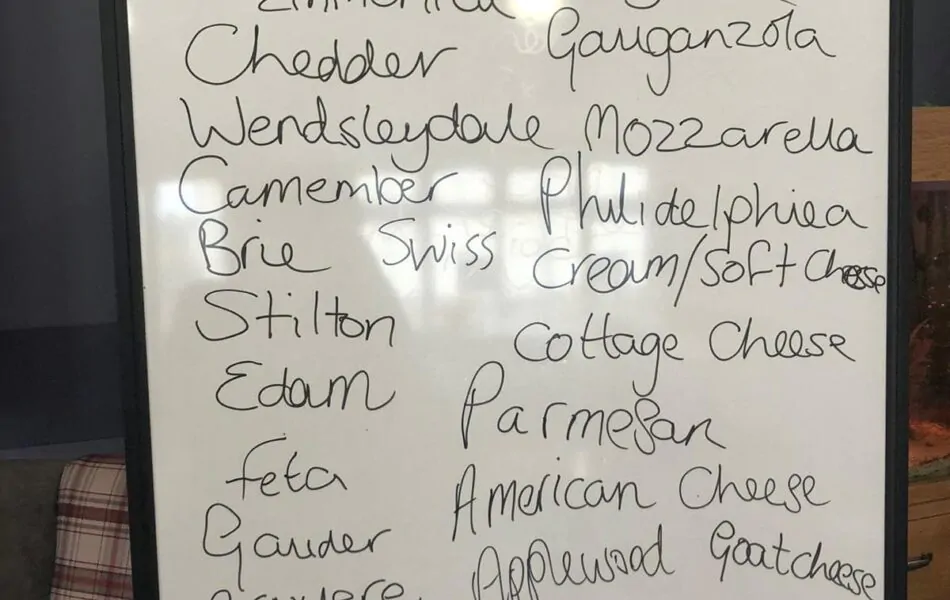 Chedder Gauganzola
Wendsleydale Mozzarella
Camember Philidelphiea
Brie Swiss Cream/Soft Cheese
Stilton Cottage Cheese
Edam Parmesan
feta American Cheese
Gauder Applewood Goatcheese